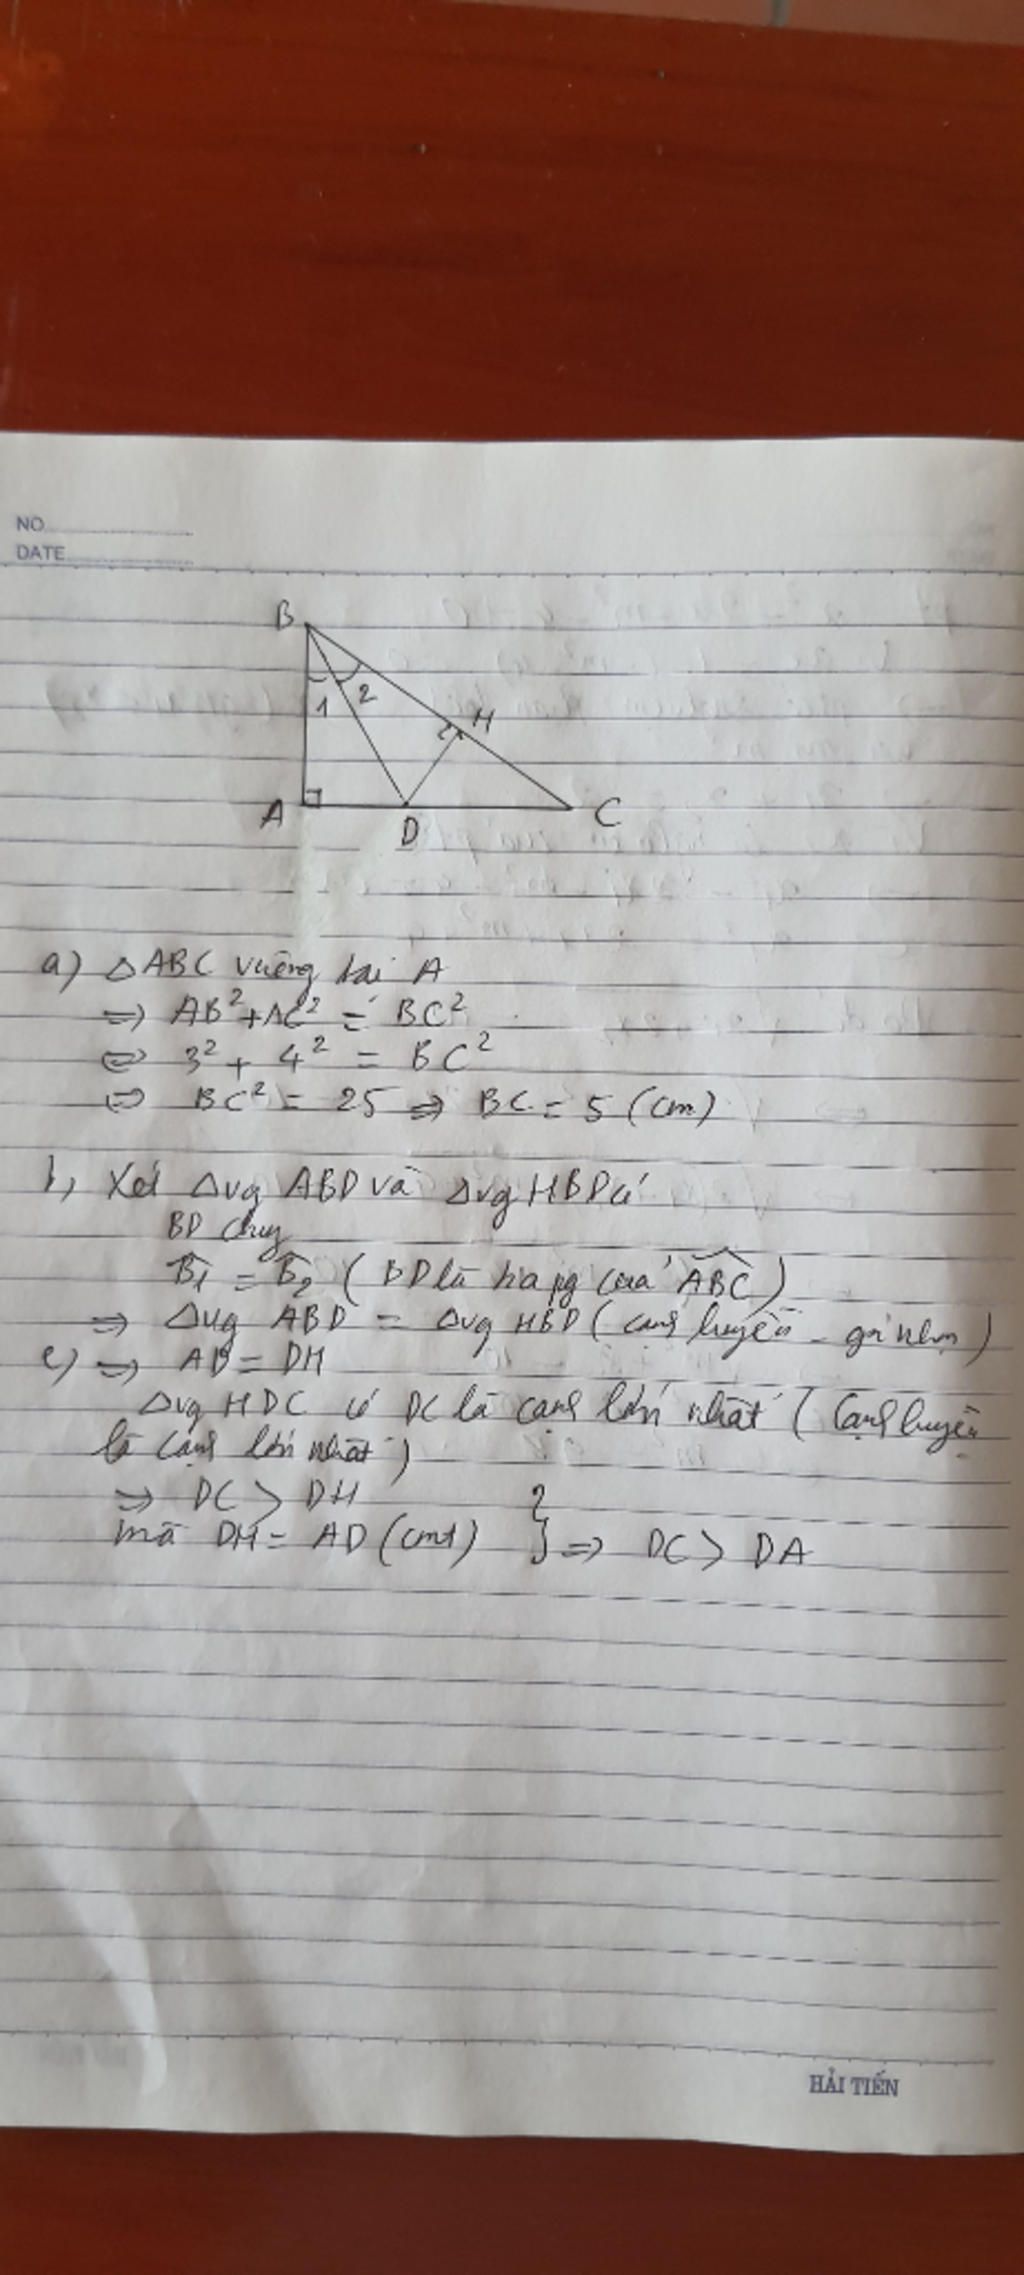 NO
DATE
B
1 2
H
A D C
a) △ABC vuông tại A
⇒ AB² + AC² = BC²
⇔ 3² + 4² = BC²
⇔ BC² = 25 ⇒ BC = 5 (cm)
b, Xét △vg ABD và △vg HBD có
BD chug
B̂1 = B̂2 (BD là p/g của ABC)
⇒ △vg ABD = △vg HBD (cạnh huyền - góc nhọn)
c) ⇒ AD = DH
△vg HDC có DC là cạnh lớn nhất (Cạnh huyền
là cạnh lớn nhất)
⇒ DC > DH
mà DH = AD (cmt) } ⇒ DC > DA
HẢI TIẾN